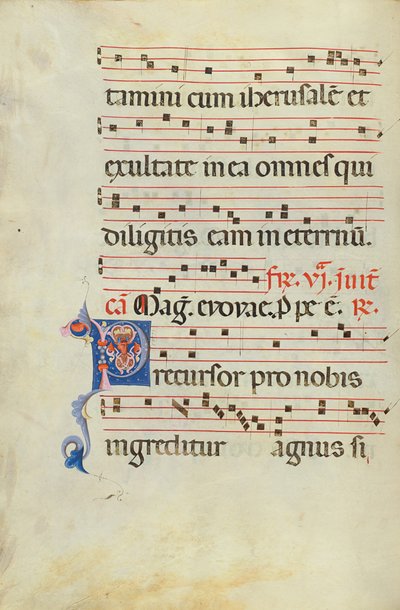 tamini cum iherusalē et
exultate in ea omnes qui
diligitis eam in eterrnū.
cā Mag̃. evovae. p̄ pe ē. R̃.
Precursor pro nobis
ingreditur agnus si